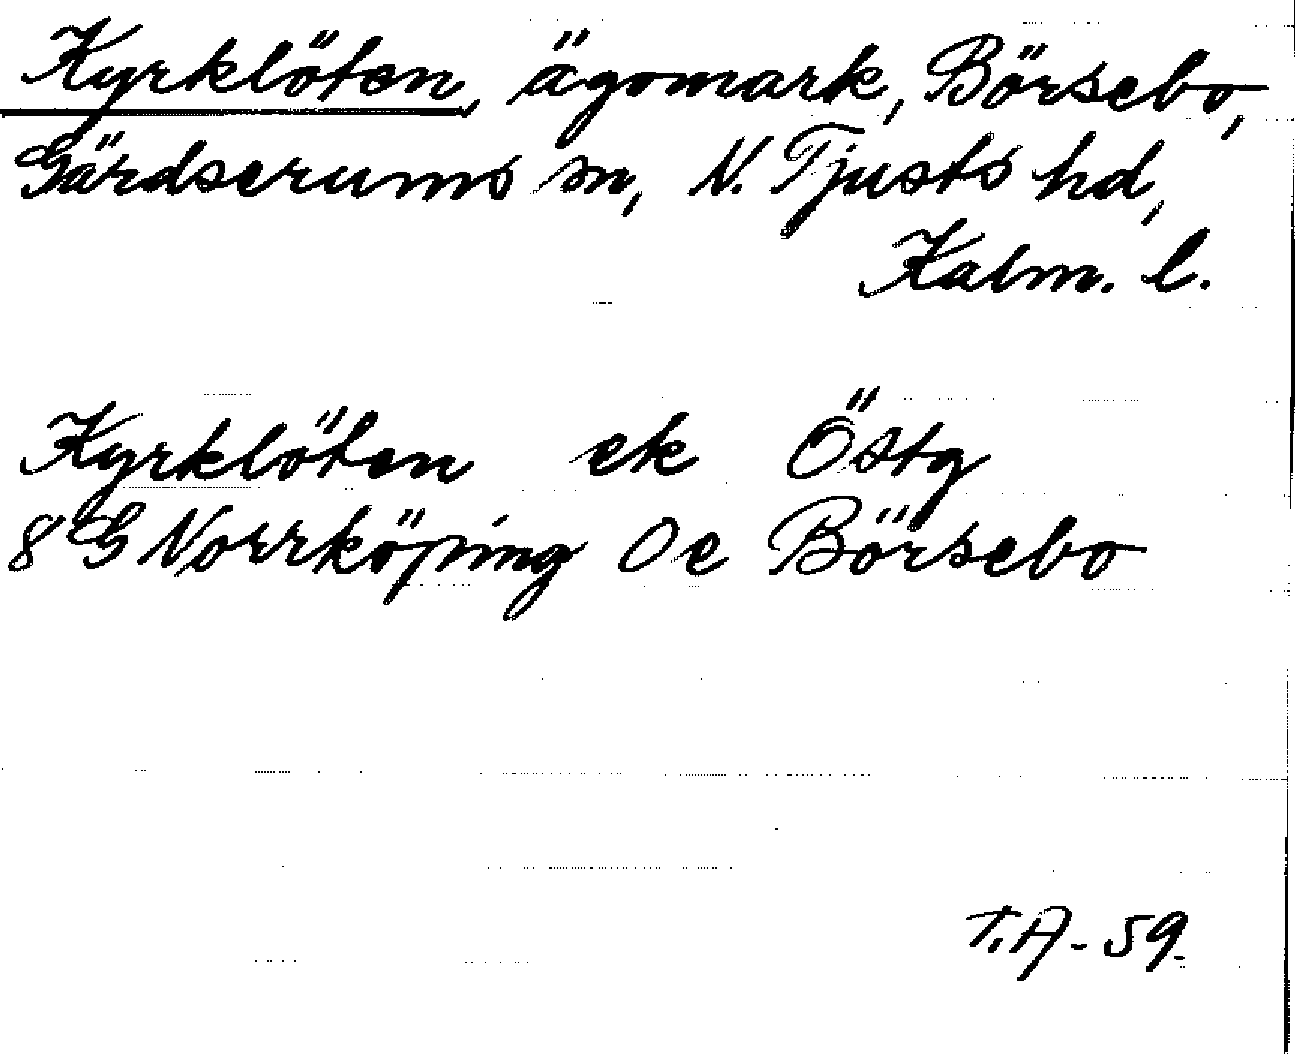 Kyrklöten, ägomark, Börsebo,
Gärdserums sn, N. Tjusts hd,
Kalm. l.
Kyrklöten ek Östg
8 G Norrköping 0e Börsebo
T.A - 59.